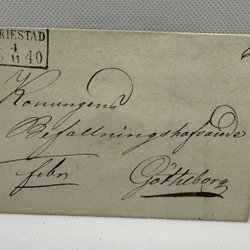 RIESTAD
4
11 40
Konungens
Befallningshafvande
Götheborg